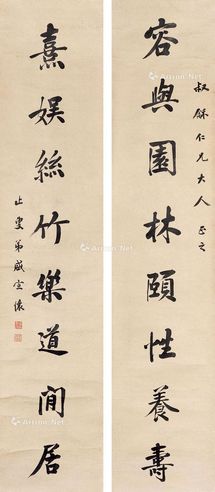 叔龢仁兄大人 正之
容與園林頤性養壽
熹娛絲竹樂道閒居
止叟弟盛宣懷
Artron.Net